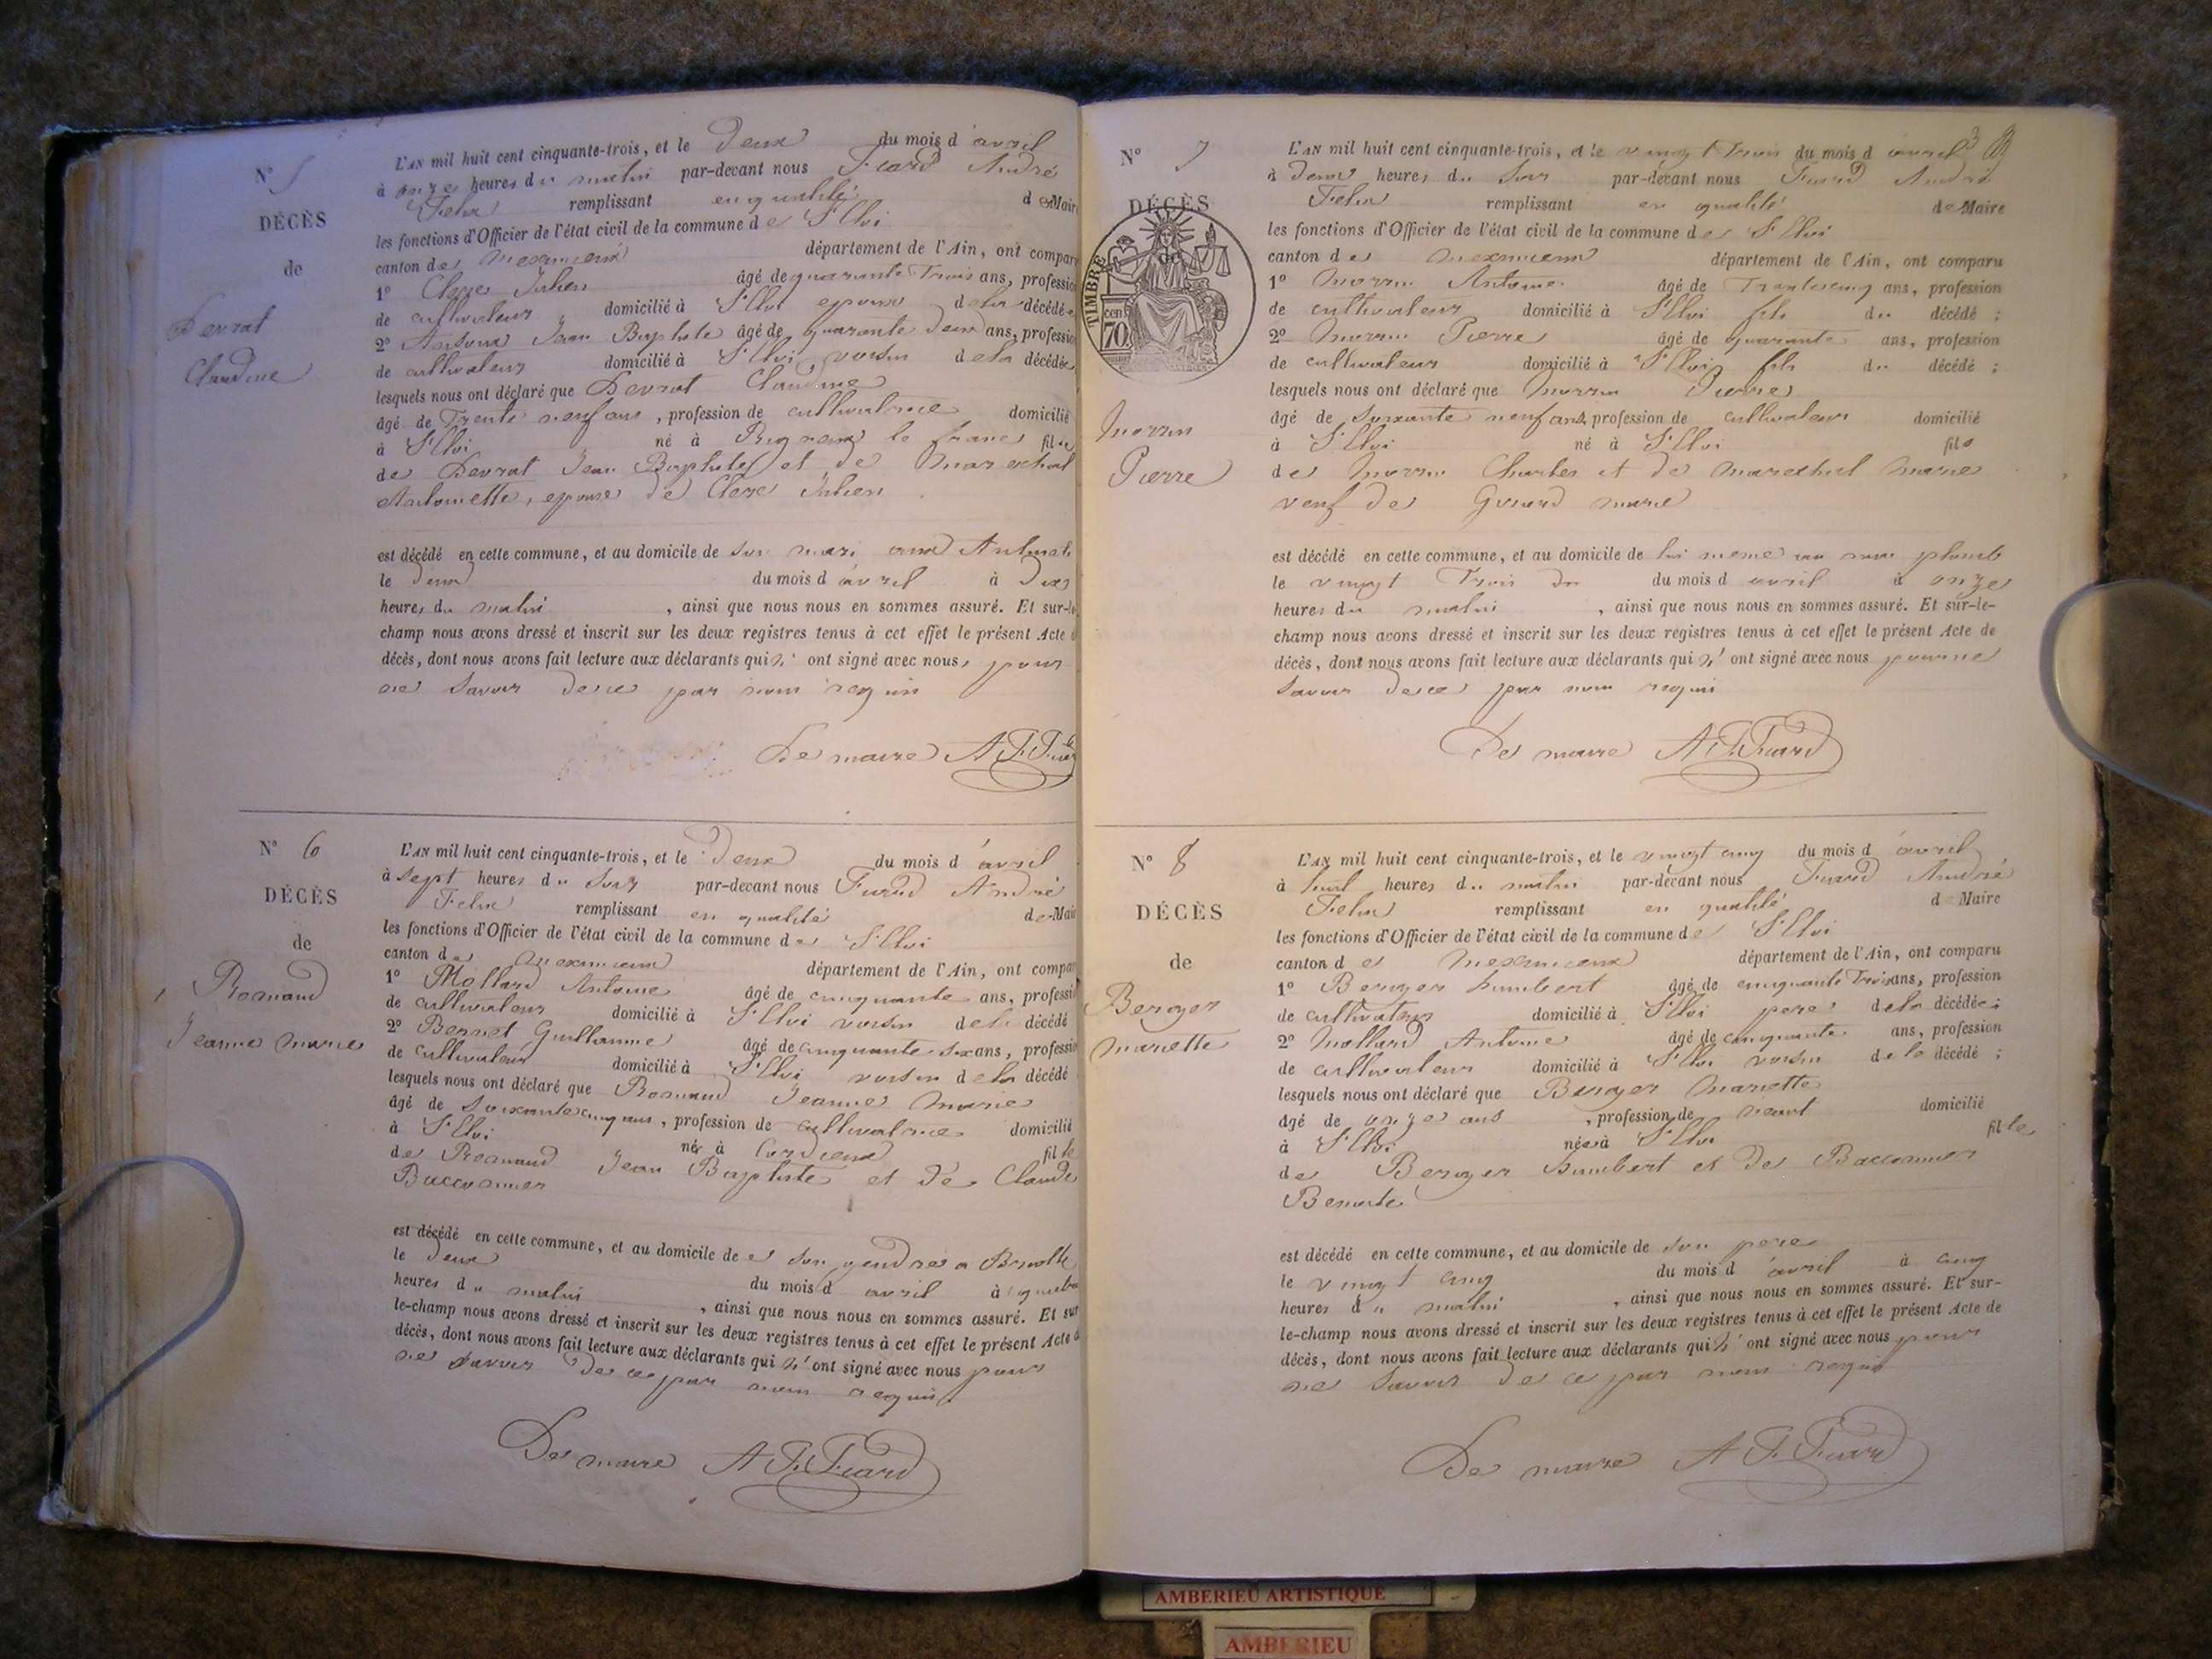 N° 5
DÉCÈS
de
Devrat
Claudine
L'AN mil huit cent cinquante-trois, et le Deux du mois d'avril
à onze heures du matin par-devant nous Fuard André
Felix remplissant en qualité de Mair
les fonctions d'Officier de l'état civil de la commune de St Eloi
canton de meximieux département de l'Ain, ont compar
1° Clerc Julien âgé de quarante Trois ans, profession
de cultivateur domicilié à St Eloi epoux de la décédée
2° Jean Baptiste âgé de quarante deux ans, profession
de cultivateur domicilié à St Eloi voisin de la décédée
lesquels nous ont déclaré que Devrat Claudine
âgé de Trente neuf ans, profession de cultivatrice domicilié
à St Eloi né à Rigneux le franc fille
de Devrat Jean Baptiste et de marechal
Antoinette, epouse de Clerc Julien
est décédé en cette commune, et au domicile de son mari
le deux du mois d'avril à Dix
heures du matin, ainsi que nous nous en sommes assuré. Et sur-le
champ nous avons dressé et inscrit sur les deux registres tenus à cet effet le présent Acte d
décès, dont nous avons fait lecture aux déclarants qui n'ont signé avec nous, pour
ne savoir de ce par nous requis
Le maire A F Fuard
N° 6
DÉCÈS
de
Romand
Jeanne marie
L'AN mil huit cent cinquante-trois, et le Deux du mois d'avril
à sept heures du soir par-devant nous Fuard André
Felix remplissant en qualité de Mair
les fonctions d'Officier de l'état civil de la commune de St Eloi
canton de meximieux département de l'Ain, ont compar
1° Mollard Antoine âgé de cinquante ans, professi
de cultivateur domicilié à St Eloi voisin de la décédé
2° Bernet Guillaume âgé de cinquante six ans, professi
de cultivateur domicilié à St Eloi voisin de la décédé
lesquels nous ont déclaré que Romand Jeanne Marie
âgé de soixante cinq ans, profession de cultivatrice domicilié
à St Eloi né à Cordieux fille
de Romand Jean Baptiste et de Claude
Bacconnier
est décédé en cette commune, et au domicile de son gendre a
le deux du mois d avril à quatre
heures du matin, ainsi que nous nous en sommes assuré. Et sur
le-champ nous avons dressé et inscrit sur les deux registres tenus à cet effet le présent Acte d
décès, dont nous avons fait lecture aux déclarants qui n'ont signé avec nous pour
ne savoir de ce par nous requis
Le maire A F Fuard
3
N° 7
DÉCÈS
de
TIMBRE
70 cen
Morrin
Pierre
L'AN mil huit cent cinquante-trois, et le vingt Trois du mois d'avril
à deux heures du soir par-devant nous Fuard André
Felix remplissant en qualité de Maire
les fonctions d'Officier de l'état civil de la commune de St Eloi
canton de meximieux département de l'Ain, ont comparu
1° Morrin Antoine âgé de Trente cinq ans, profession
de cultivateur domicilié à St Eloi fils du décédé ;
2° Morrin Pierre âgé de quarante ans, profession
de cultivateur domicilié à St Eloi fils du décédé ;
lesquels nous ont déclaré que Morrin Pierre
âgé de soixante neuf ans profession de cultivateur domicilié
à St Eloi né à St Eloi fils
de Morrin Charles et de Marechal Marie
veuf de Guiard marie
est décédé en cette commune, et au domicile de lui meme au
le vingt Trois du du mois d avril à onze
heures du matin, ainsi que nous nous en sommes assuré. Et sur-le-
champ nous avons dressé et inscrit sur les deux registres tenus à cet effet le présent Acte de
décès, dont nous avons fait lecture aux déclarants qui n'ont signé avec nous pour ne
savoir de ce par nous requis
Le maire A F Fuard
N° 8
DÉCÈS
de
Beroger
mariette
L'AN mil huit cent cinquante-trois, et le vingt cinq du mois d'avril
à huit heures du matin par-devant nous Fuard André
Felix remplissant en qualité de Maire
les fonctions d'Officier de l'état civil de la commune de St Eloi
canton de Meximieux département de l'Ain, ont comparu
1° Beroger humbert âgé de cinquante Trois ans, profession
de cultivateur domicilié à St Eloi pere de la décédée ;
2° Mollard Antoine âgé de cinquante ans, profession
de cultivateur domicilié à St Eloi voisin de la décédé ;
lesquels nous ont déclaré que Beroger Mariette
âgé de onze ans, profession de neant domicilié
à St Eloi née à St Eloi fille
de Beroger humbert et de Bacconnier
Benoite
est décédé en cette commune, et au domicile de son pere
le vingt cinq du mois d'avril à cinq
heures du matin, ainsi que nous nous en sommes assuré. Et sur-
le-champ nous avons dressé et inscrit sur les deux registres tenus à cet effet le présent Acte de
décès, dont nous avons fait lecture aux déclarants qui n'ont signé avec nous pour
ne savoir de ce par nous requis
Le maire A F Fuard
AMBERIEU ARTISTIQUE
AMBERIEU